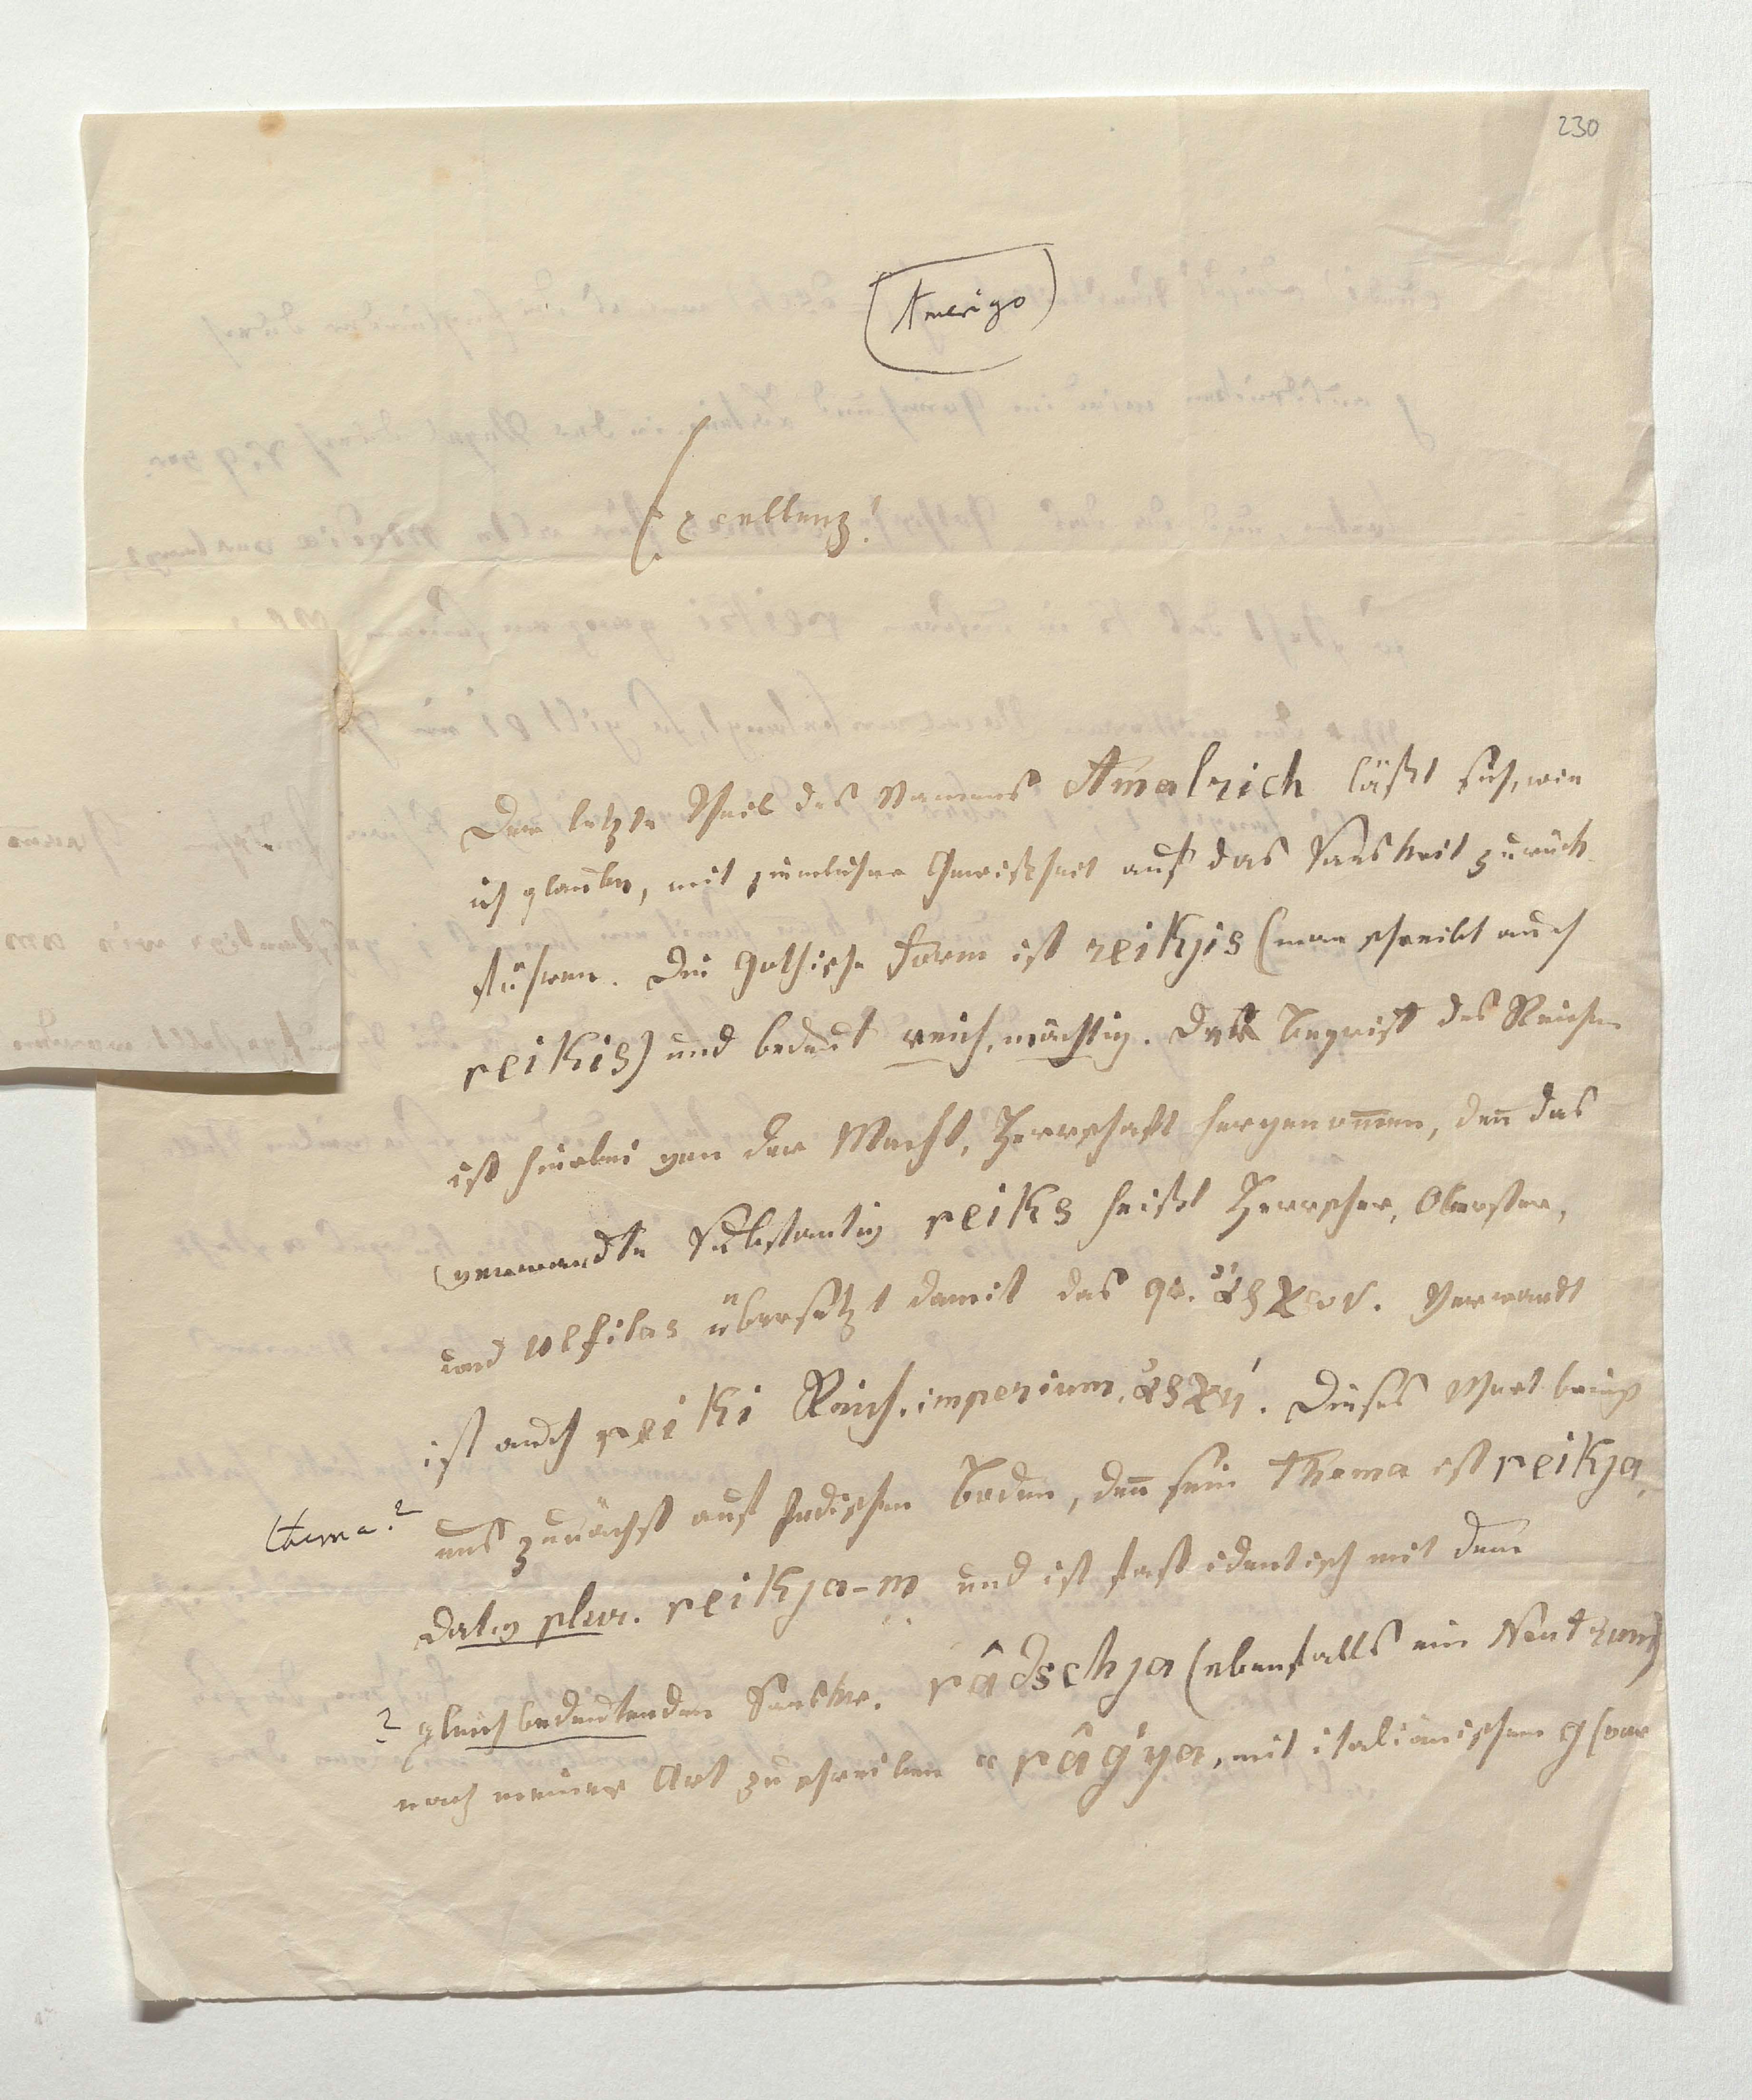 230
Amerigo
Excellenz!
Der letzte Theil des Namens Amalrich läßt sich, wie
ich glaube, mit ziemlicher Gewißheit auf das Sanskrit zurück
führen. Die Gothische Form ist reikjis (man schreibt auch
reikis) und bedeut reich, mächtig. Der Begriff des Reichen
ist hierbei von der Macht, Herrschaft hergenom̄en, den̄ das
verwandte Substantiv reiks heißt Herrscher, Oberster,
und Ulfilas übersetzt damit das gr. ἄρχων. Verwandt
ist auch reiki Reich, imperium, ἀρχή. Dieses Wort bringt
uns zunächst auf Indischen Boden, den̄ sein Thema ist reikja,
thema?
Dativ plur. reikja-m und ist fast identisch mit dem
? gleichbedeutenden Sanskr. râdschja (ebenfalls ein Neutrum)
nach meiner Art zu schreiben râg'ya, mit italiänischem g (vor